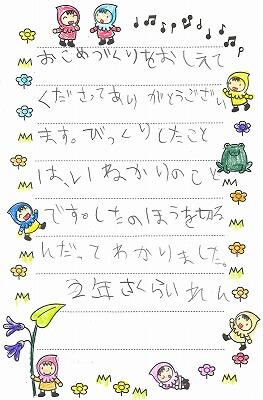 おこめづくりをおしえて
くださってありがとうござい
ます。びっくりしたこと
は、いねかりのこと
です。したのほうを切る
んだってわかりました。
2年さくらいれん